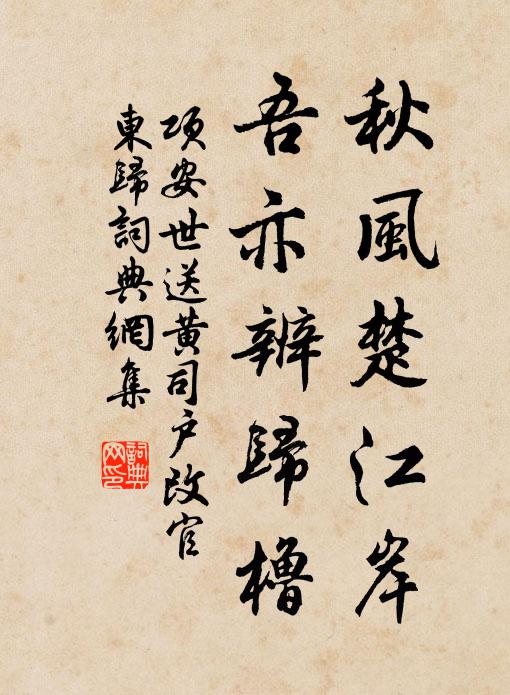 秋風楚江岸
吾亦辨歸櫓
項安世送黄司户改官
東歸詞典網集
詞典网印